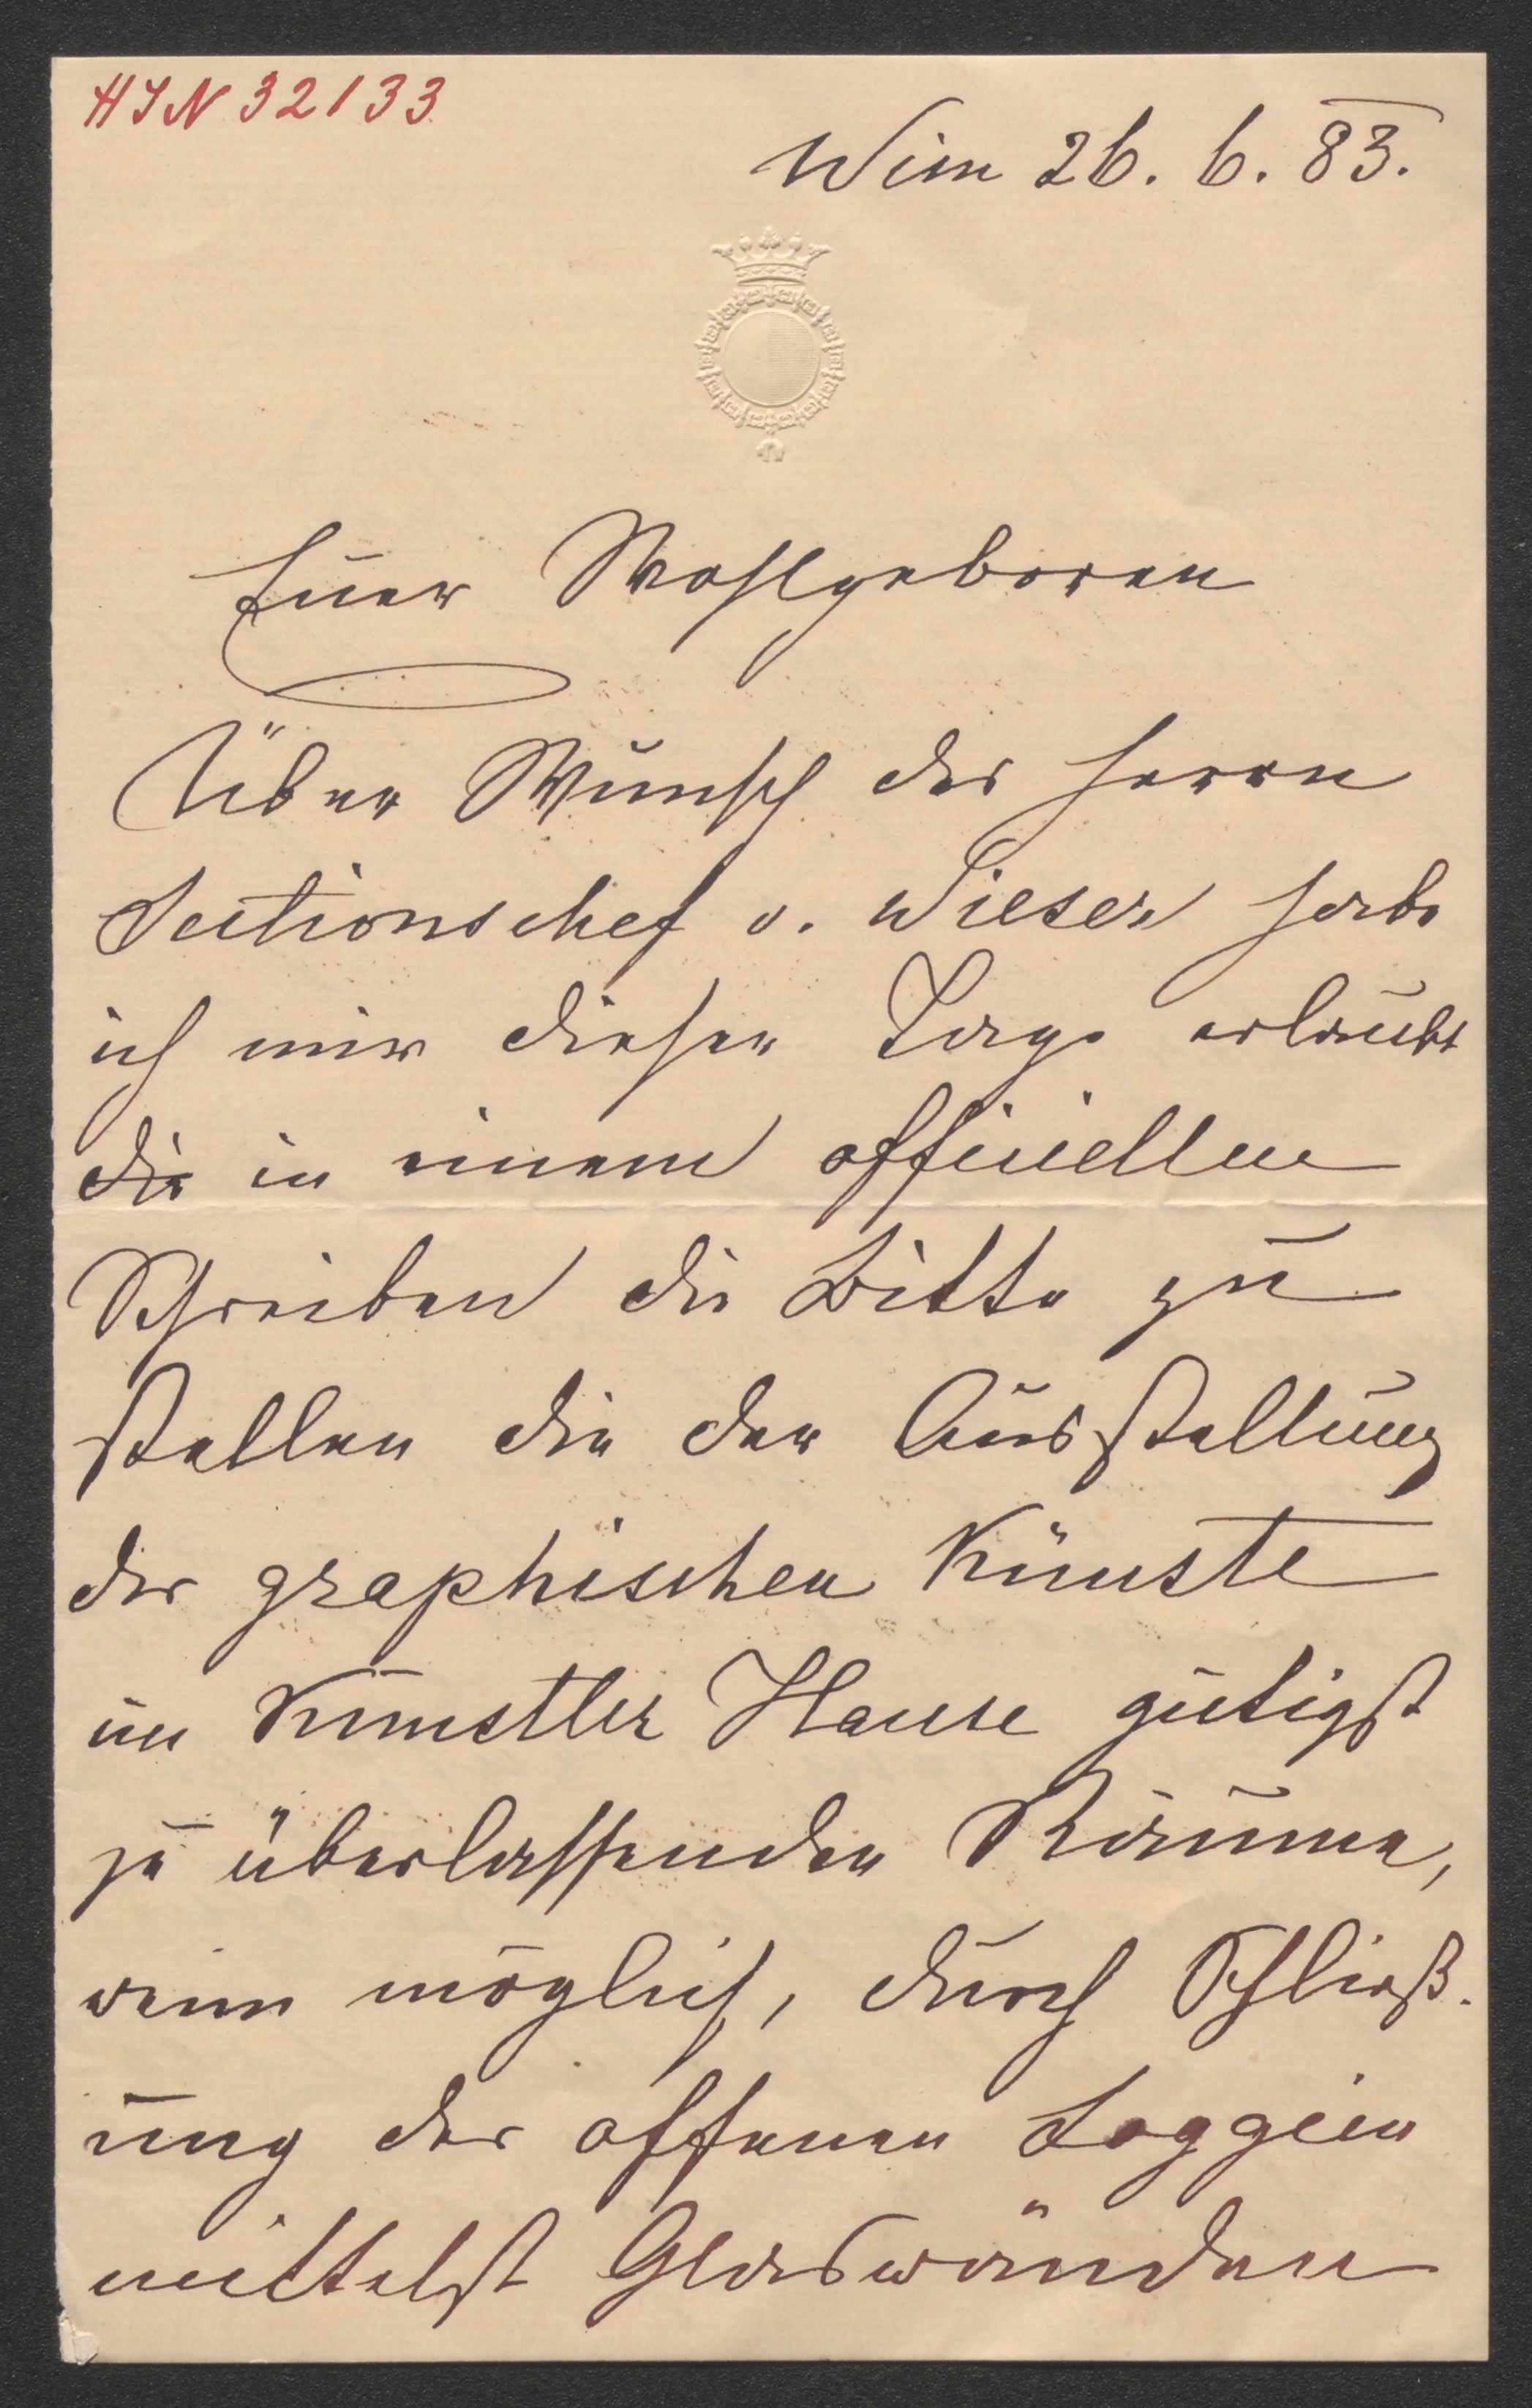 HIN 32133
Wien 26. 6. 83.
Euer Wohlgeboren
Über Wunsch des Herrn
Sectionschef v. Wieser habe
ich mir dieser Tage erlaubt
die in einem officiellen
Schreiben die Bitte zu
stellen die der Ausstellung
der graphischen Künste
im Künstler Hause gütigst
zu überlassenden Räume,
wenn möglich, durch Schließ-
ung der offenen Loggien
mittelst Glaswänden